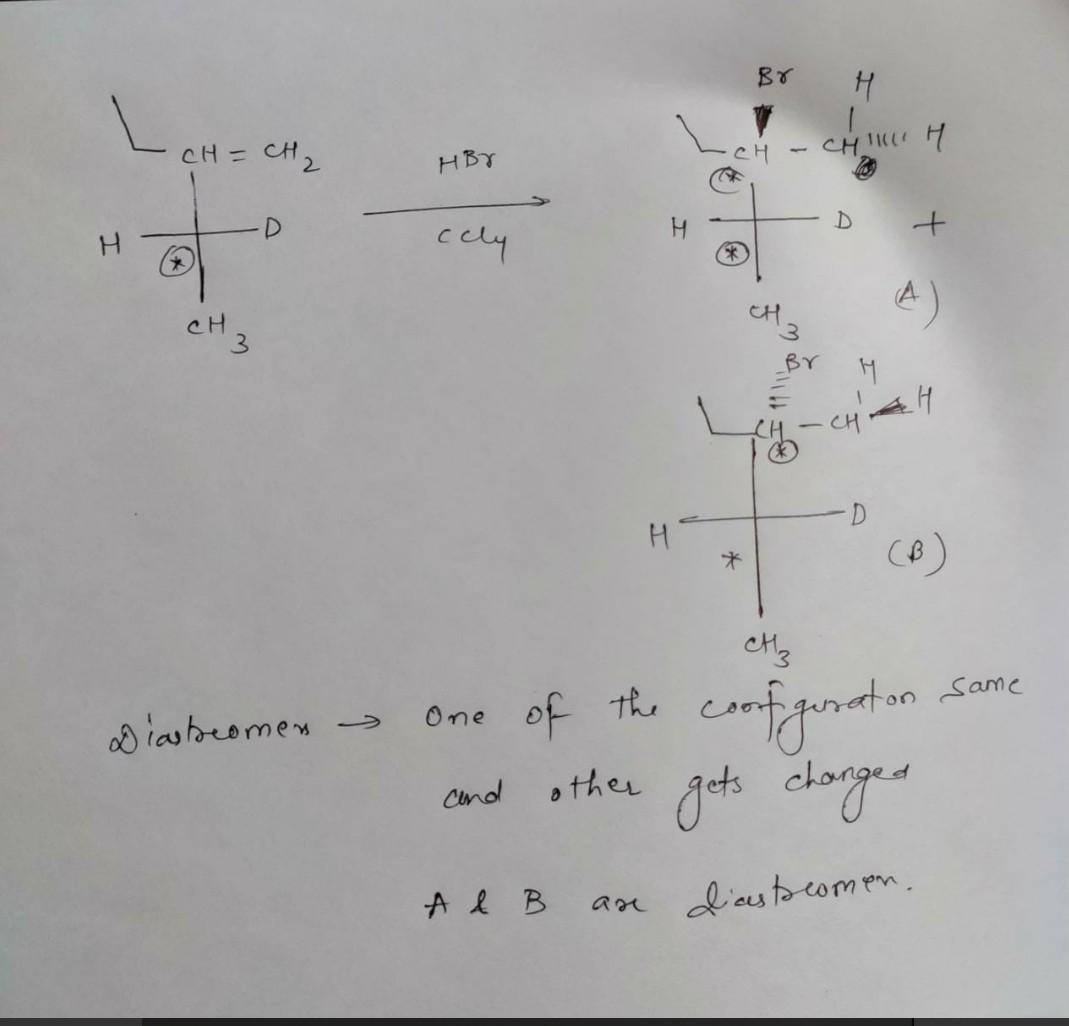 CH = CH2
H D
*
CH3
HBr
CCl4
Br H
CH - CH H
*
H D +
*
CH3
(A)
Br H
CH - CH H
*
H D
*
CH3
(B)
Diastreomers → One of the configuraton same
and other gets changed
A & B are diastreomer.